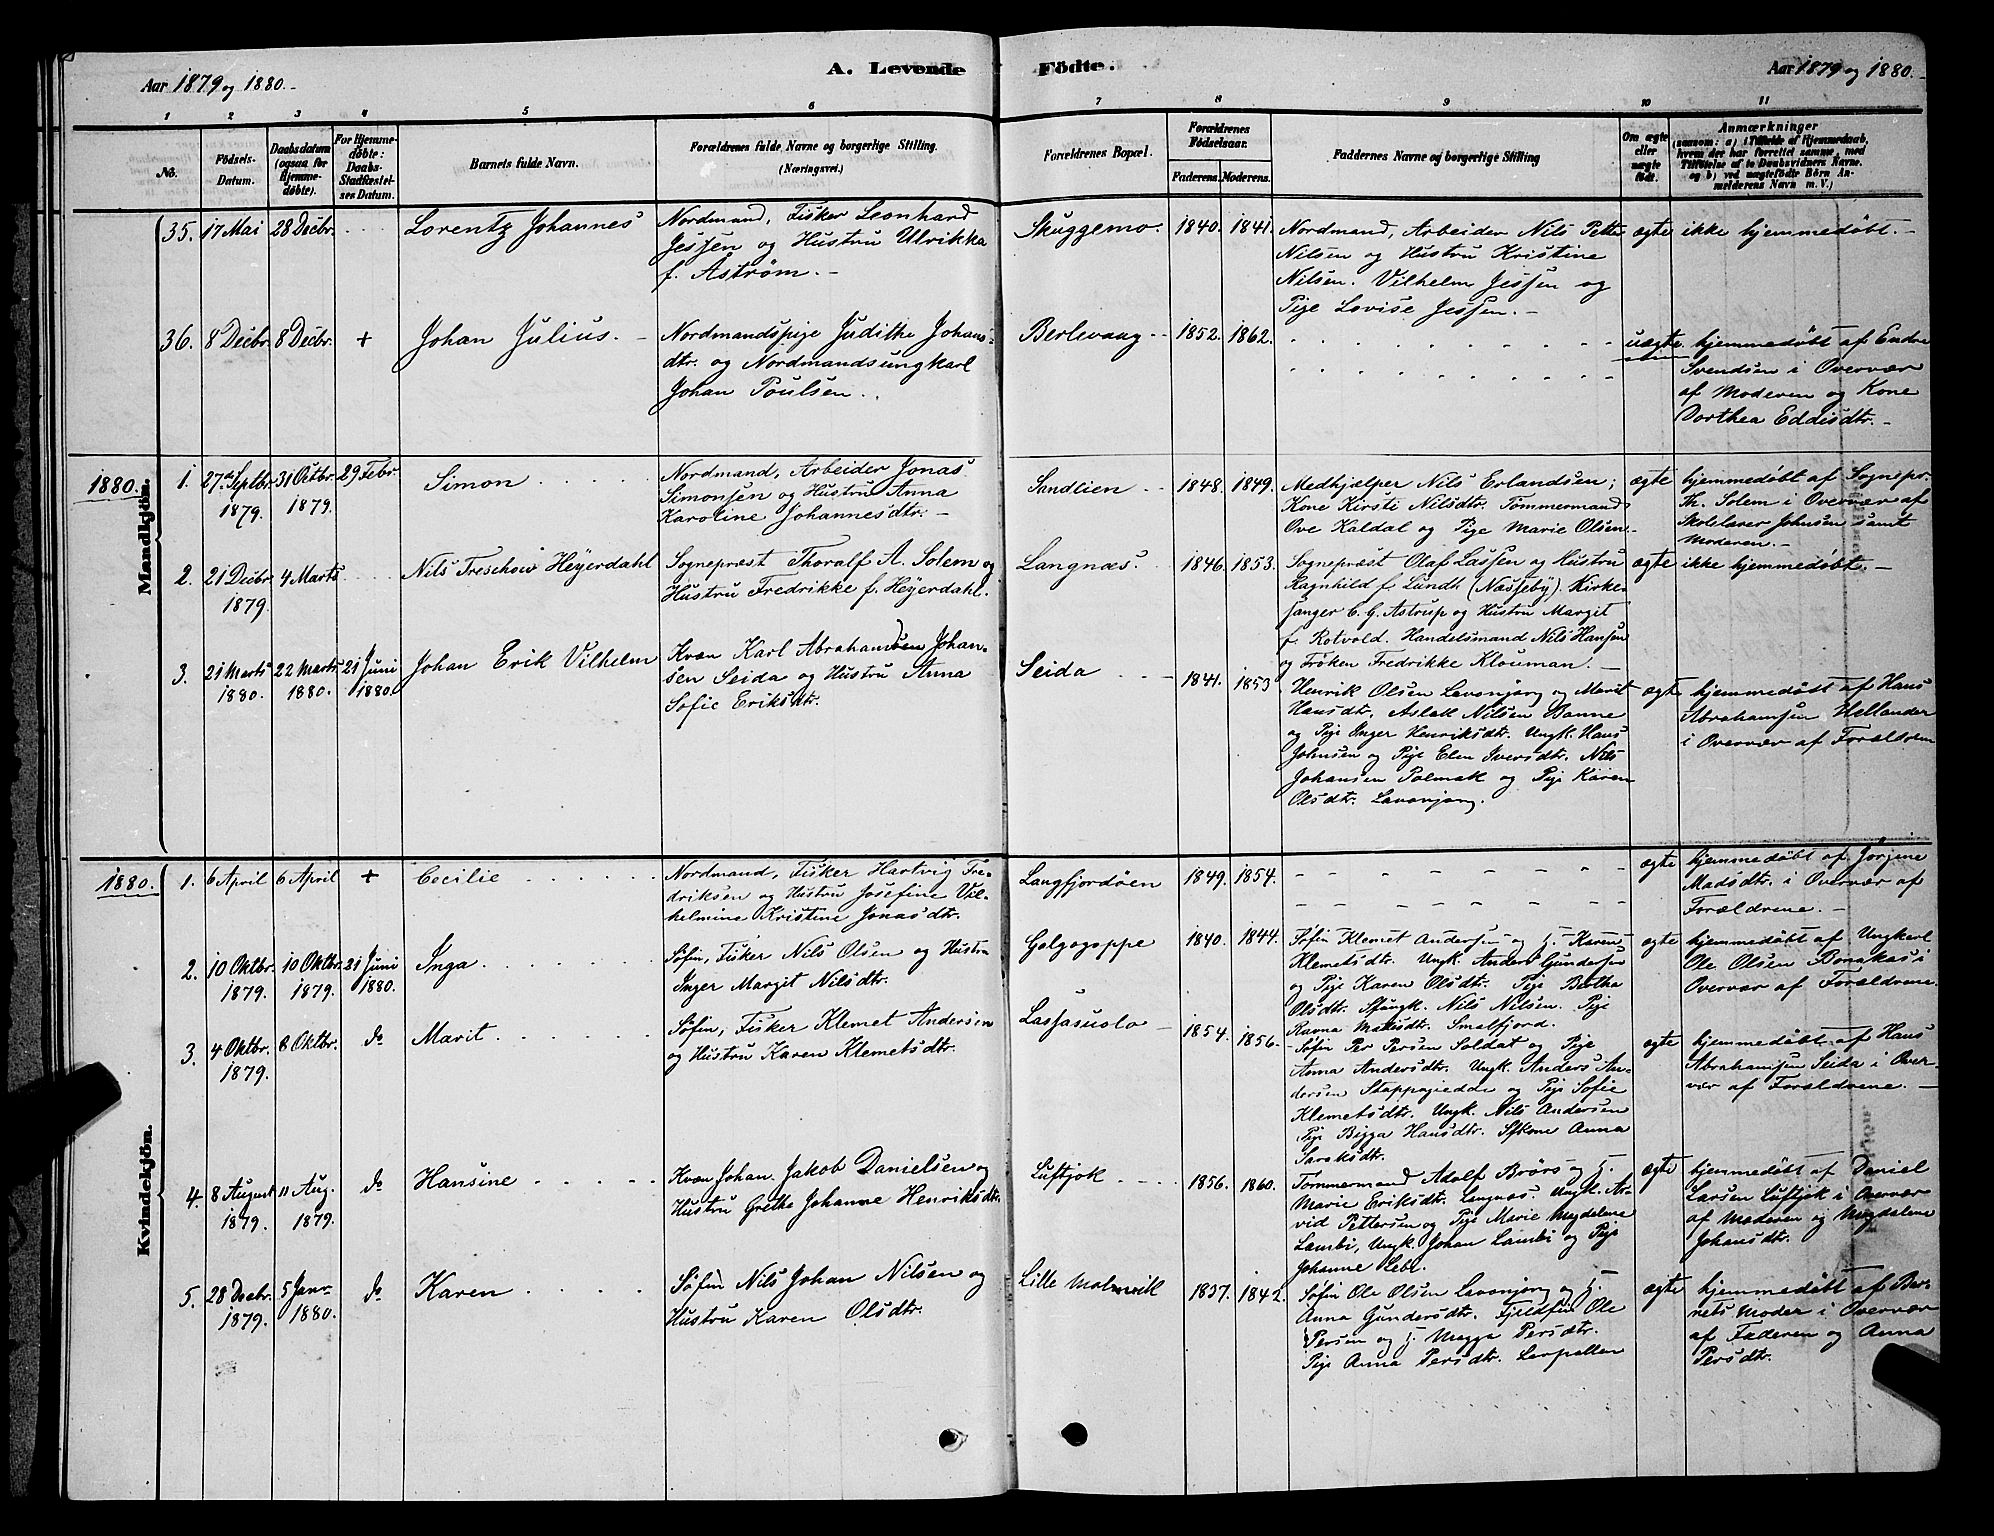 Aar 1879 og 1880.-
A. Levende
Födte.
Aar 1879 og 1880.-
1 2 3 4 5 6 7 8 9 10 11
No.
Födsels-
Datum.
Daabsdatum
(ogsaa for
Hjemme-
döbte).
For Hjemme-
döbte:
Daabs-
Stadfæstel-
ses Datum.
Barnets fulde Navn.
Forældrenes fulde Navne og borgerlige Stilling.
(Næringsvei.)
Forældrenes Bopæl.
Forældrenes
Födselsaar.
Faderens. Moderens.
Faddernes Navne og borgerlige Stilling
Om ægte
eller
uægte
födt.
Anmærkninger
(saasom: a) i Tilfælde af Hjemmedaab,
hvem der har forrettet samme, med
Tilföielse af to Daabsvidners Navne,
og b) ved uægtefödte Börn An-
melderens Navn m. V.)
35. 17 Mai 28 Decbr. Lorentz Johannes
Nordmand, Fisker Leonhard
Jessen og Hustru Ulrikka
f. Åström. -
Skuggemo. 1840. 1841.
Nordmand, Arbeider Nils Petter
Nilsen og Hustru Kristine
Nilsen. Vilhelm Jessen og
Pige Lovise Jessen. -
ægte ikke hjemmedøbt. -
36. 8 Decbr. 8 Decbr. + Johan Julius. -
Nordmandspige Judithe Johans-
dtr. og Nordmandsungkarl
Johan Poulsen.
Berlevaag 1852. 1862.
uægte
hjemmedøbt af Endre
Svendsen i Overvær
af Moderen og Kone
Dorthea Eddisdtr. -
1880.
Mandkjön.
1. 27de Septbr. 31 Octbr. 29 Febr.
1879. 1879.
Simon
Nordmand, Arbeider Jonas
Simonsen og Hustru Anna
Karoline Johannesdtr. -
Sandlien 1848. 1849.
Medhjælper Nils Erlandsen;
Kone Kirsti Nilsdtr. Tømmermand
Ove Kaldal og Pige Marie Olsen.
ægte
hjemmedøbt af Sognepr.
Th. Solem i Overvær af
Skolelærer Johnsen samt
Moderen. -
2. 21 Decbr. 4 Marts
1879.
Nils Treschow Heyerdahl
Sognepræst Thoralf A. Solem og
Hustru Fredrikke f. Heyerdahl.
Langnæs. 1846. 1853.
Sognepræst Olaf Lassen og Hustru
Ragnhild f. Lundh (Næsseby). Kirke-
sanger C. G. Astrup og Hustru Margit
f. Rotvold. Handelsmand Nils Hansen
og Frøken Fredrikke Klouman. -
ægte ikke hjemmedøbt. -
3. 21 Marts 22 Marts 21 Juni
1880. 1880. 1880.
Johan Erik Vilhelm
Kvæn Karl Abrahamsen Johan-
sen Seida og Hustru Anna
Sofie Eriksdtr.
Seida 1841. 1853
Henrik Olsen Levonjarg og Marit
Hansdtr. Aslak Nilsen Banne
og Pige Inger Henriksdtr. Ungk. Hans
Johnsen og Pige Elen Iversdtr. Nils
Johansen Polmak og Pige Karen
Olsdtr. Lavonjarg.
ægte
hjemmedøbt af Hans
Abrahamsen Hellander
i Overvær af Forældrene
1880.
Kvindekjön.
1. 6 April 6 April + Cecilie
Nordmand, Fisker Hartvig Fre-
driksen og Hustru Josefine Vil-
helmine Kristine Jonasdtr.
Langfjordøen 1849. 1854.
ægte
hjemmedøbt af Jørgine
Madsdtr. i Overvær af
Forældrene. -
2. 10 Oktbr. 10 Oktbr. 21 Juni
1879. 1879. 1880.
Inga
Søfin, Fisker Nils Olsen og Hustru
Inger Margit Nilsdtr.
Golgogoppe 1840. 1844.
Søfin Klemet Andersen og H. Karen
Klemetsdtr. Ungk. Anders Gundersen
og Pige Karen Olsdtr. Pige Bertha
Olsdtr. Sfungk. Nils Nilsen. Pige
Ravna Matisdtr. Smalfjord.
ægte
hjemmedøbt af Ungkarl
Ole Olsen Bonakas i
Overvær af Forældrene.
3. 4 Oktbr. 8 Oktbr. do
1879.
Marit
Søfin, Fisker Klemet Andersen
og Hustru Karen Klemetsdtr.
Lassasuolo 1854. 1856.
Søfin Per Persen Soldat og Pige
Anna Andersdtr. Ungk. Anders An-
dersen Stappogiedde og Pige Sofie
Klemetsdtr. Ungk. Nils Andersen
Pige Bigga Hansdtr. Sfkone Anna
Saraksdtr.
ægte
hjemmedøbt af Hans
Abrahamsen Seida i Over-
vær af Forældrene. -
4. 8 August 11 Aug. do
1879. 1879.
Hansine
Kvæn Johan Jakob Danielsen og
Hustru Grethe Johanne Henriksdtr.
Luftjok 1856. 1860.
Tømmermand Adolf Brørs og H.
Marie Eriksdtr. Langnæs. Ungk. Ar-
vid Pettersen og Pige Marie Magdalene
Lambi, Ungk. Johan Lambi og Pige
Johanne
ægte
hjemmedøbt af Daniel
Larsen Luftjok i Overvær
af Moderen og Magdalene
Johansdtr.
5. 28 Decbr. 5 Janr.
1879. 1880. do
Karen
Søfin Nils Johan Nilsen og
Hustru Karen Olsdtr.
Lille Molvik 1837. 1842.
Søfin Ole Olsen Levonjarg og H.
Anna Gundersdtr. Fjeldfin Ole
Persen og H. Magga Persdtr.
Pige Anna Persdtr. Lerpollen
ægte
hjemmedøbt af Bar-
nets Moder i Overvær
af Faderen og Anna
Persdtr.